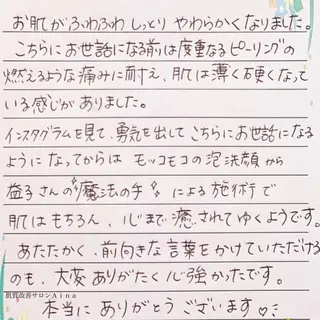 お肌がふわふわしっとりやわらかくなりました。
こちらにお世話になる前は度重なるピーリングの
燃えるような痛みに耐え、肌は薄く硬くなって
いる感じがありました。
インスタグラムを見て、勇気を出してこちらにお世話になる
ようになってからは モッコモコの泡洗顔から
益子さんの*魔法の手*による施術で
肌はもちろん、心まで癒されてゆくようです。
あたたかく、前向きな言葉をかけていただける
のも、大変ありがたく心強かったです。
肌質改善サロンAina
本当に ありがとう ございます♡: